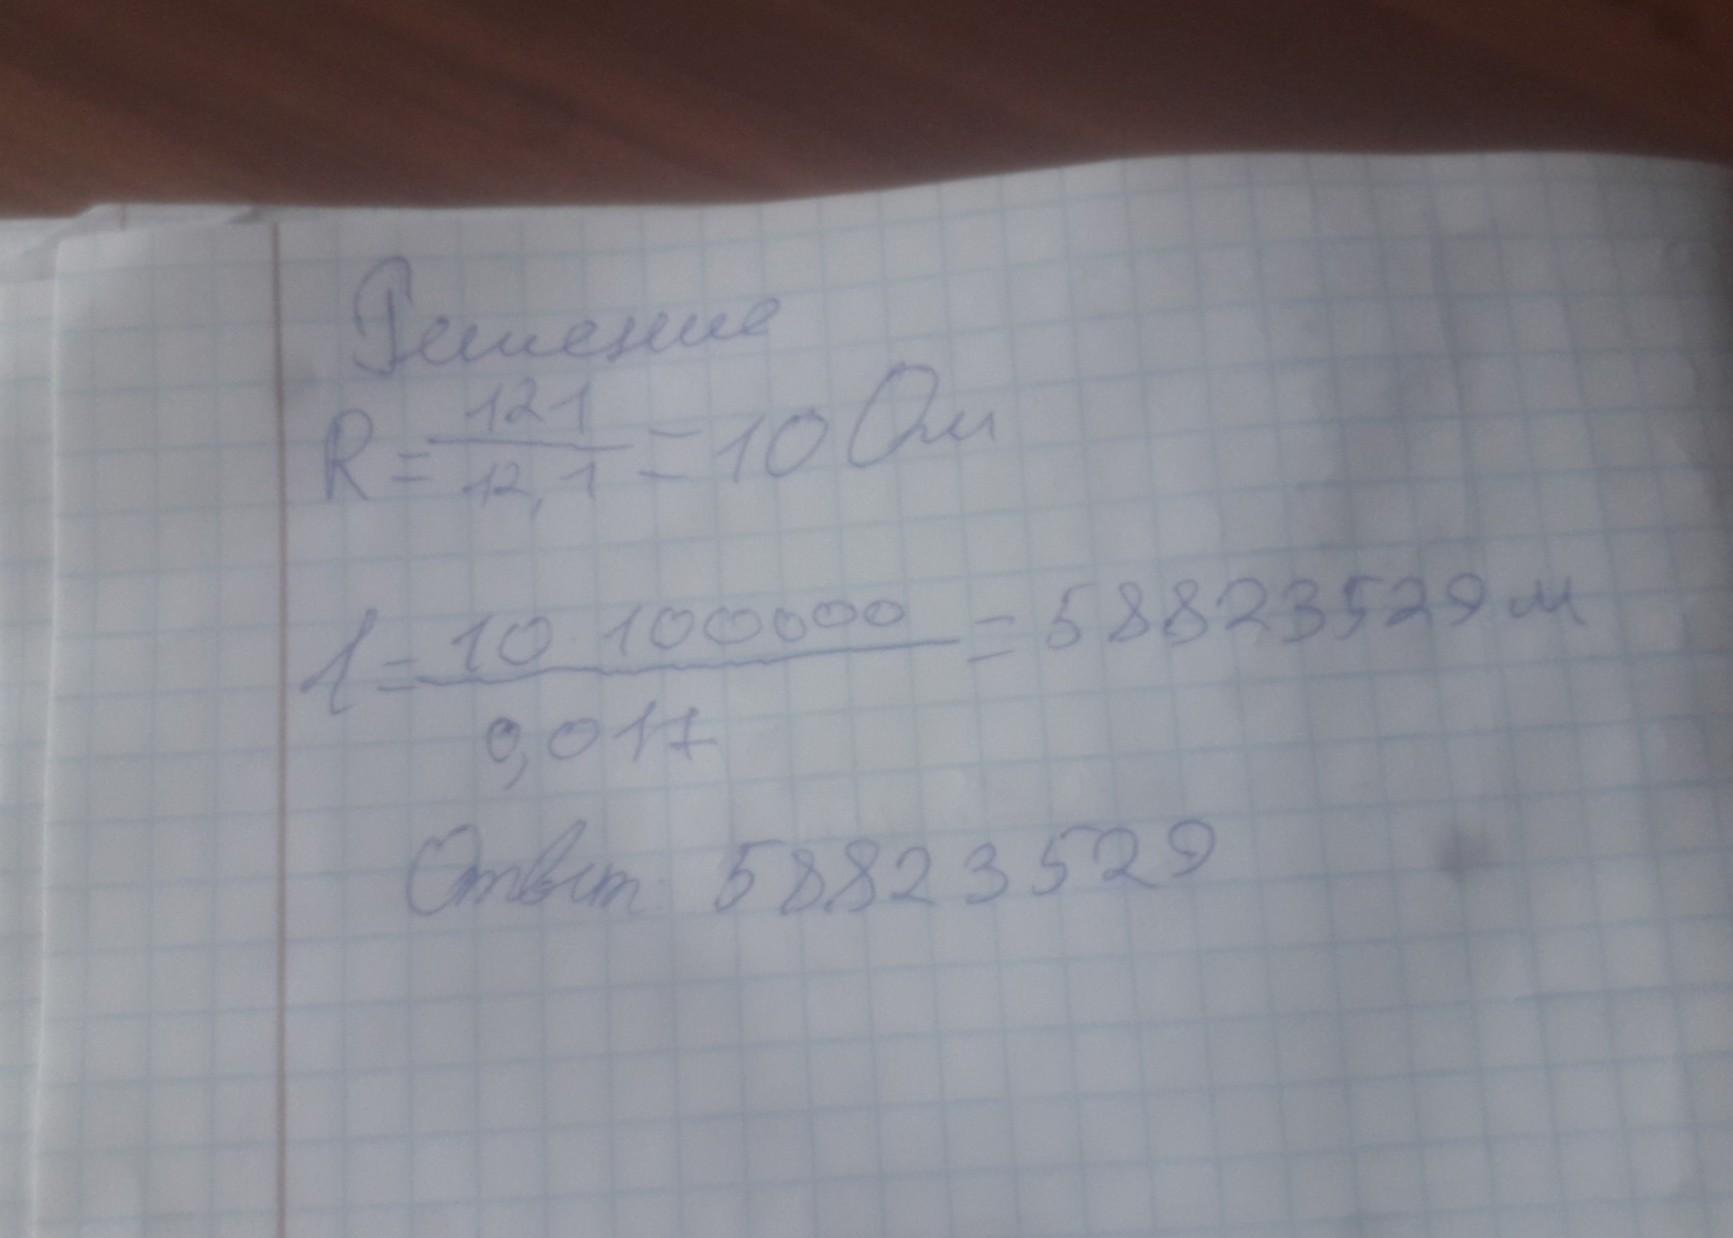 Решение
R = 121 / 12,1 = 10 Ом
l = 10 · 100000 / 0,017 = 58823529 м
Ответ: 58823529